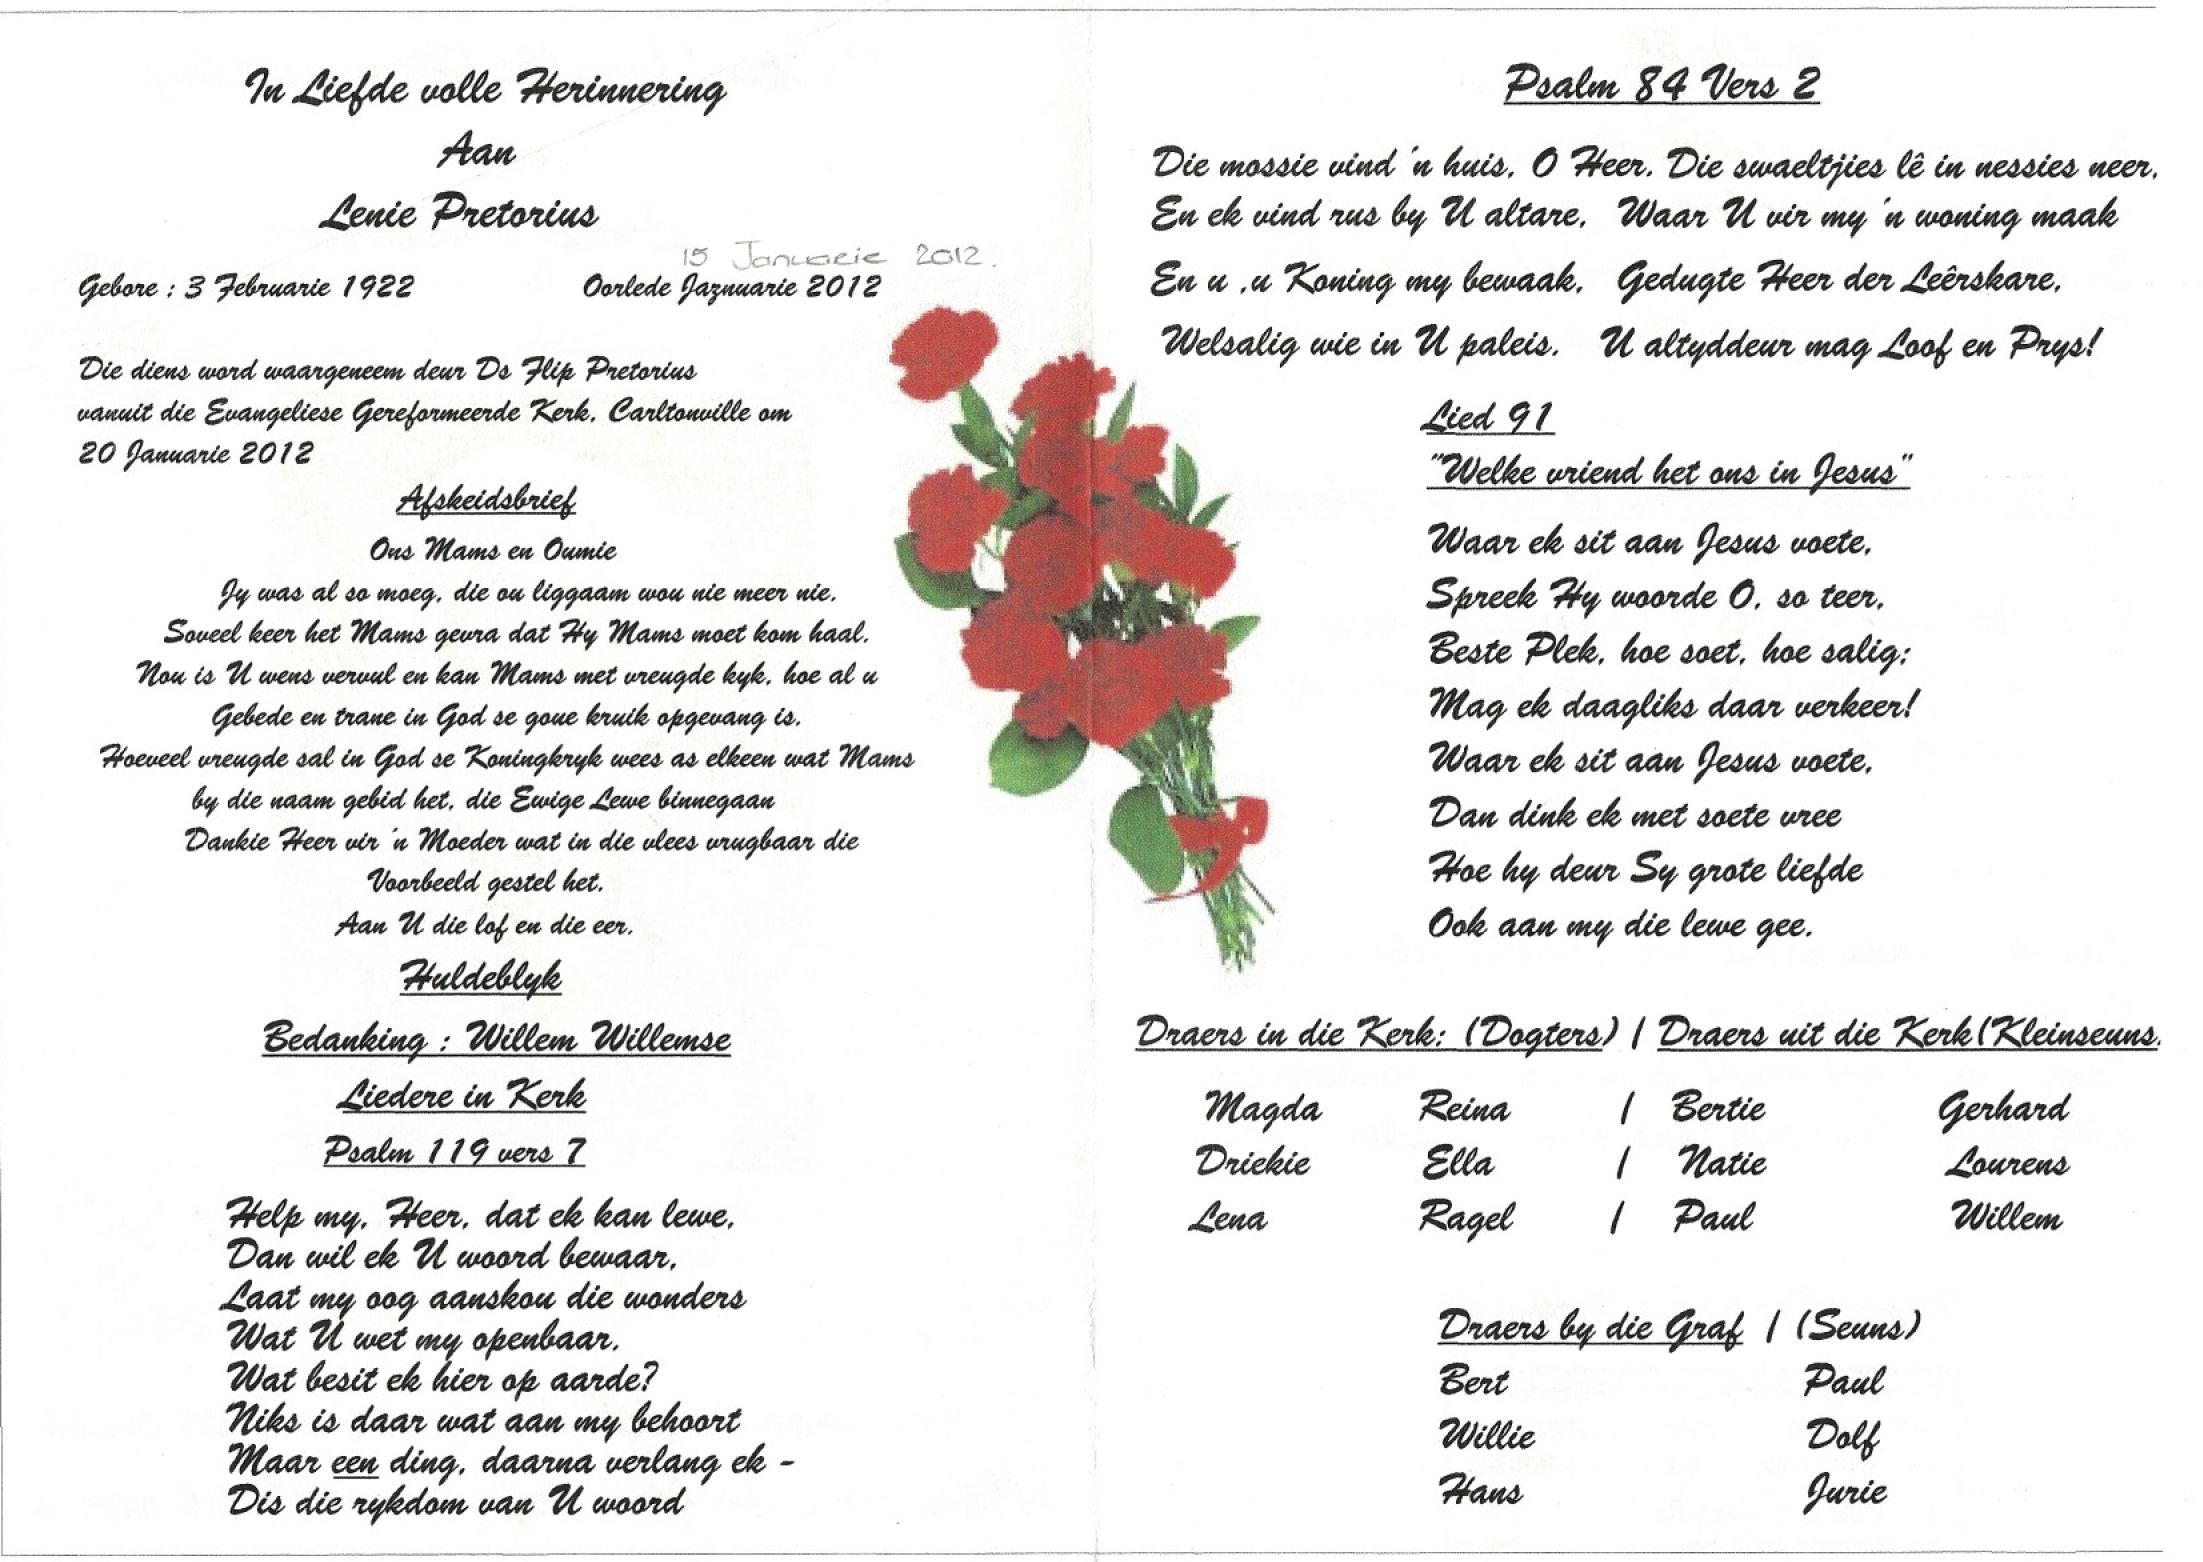 In Liefde volle Herinnering
Aan
Lenie Pretorius
15 Januarie 2012.
Gebore : 3 Februarie 1922 Oorlede Jaznuarie 2012
Die diens word waargeneem deur Ds Flip Pretorius
vanuit die Evangeliese Gereformeerde Kerk, Carltonville om
20 Januarie 2012
Afskeidsbrief
Ons Mams en Oumie
Jy was al so moeg, die ou liggaam wou nie meer nie,
Soveel keer het Mams gevra dat Hy Mams moet kom haal.
Nou is U wens vervul en kan Mams met vreugde kyk, hoe al u
Gebede en trane in God se goue kruik opgevang is.
Hoeveel vreugde sal in God se Koningkryk wees as elkeen wat Mams
by die naam gebid het, die Ewige Lewe binnegaan
Dankie Heer vir 'n Moeder wat in die vlees vrugbaar die
Voorbeeld gestel het.
Aan U die lof en die eer.
Huldeblyk
Bedanking : Willem Willemse
Liedere in Kerk
Psalm 119 vers 7
Help my, Heer, dat ek kan lewe,
Dan wil ek U woord bewaar,
Laat my oog aanskou die wonders
Wat U wet my openbaar.
Wat besit ek hier op aarde?
Niks is daar wat aan my behoort
Maar een ding, daarna verlang ek -
Dis die rykdom van U woord
Psalm 84 Vers 2
Die mossie vind 'n huis, O Heer. Die swaeltjies lê in nessies neer,
En ek vind rus by U altare, Waar U vir my 'n woning maak
En u ,u Koning my bewaak, Gedugte Heer der Leêrskare,
Welsalig wie in U paleis, U altyddeur mag Loof en Prys!
Lied 91
"Welke vriend het ons in Jesus"
Waar ek sit aan Jesus voete,
Spreek Hy woorde O, so teer,
Beste Plek, hoe soet, hoe salig;
Mag ek daagliks daar verkeer!
Waar ek sit aan Jesus voete,
Dan dink ek met soete vree
Hoe hy deur Sy grote liefde
Ook aan my die lewe gee.
Draers in die Kerk: (Dogters) / Draers uit die Kerk(Kleinseuns.
Magda Reina / Bertie Gerhard
Driekie Ella / Natie Lourens
Lena Ragel / Paul Willem
Draers by die Graf / (Seuns)
Bert Paul
Willie Dolf
Hans Jurie